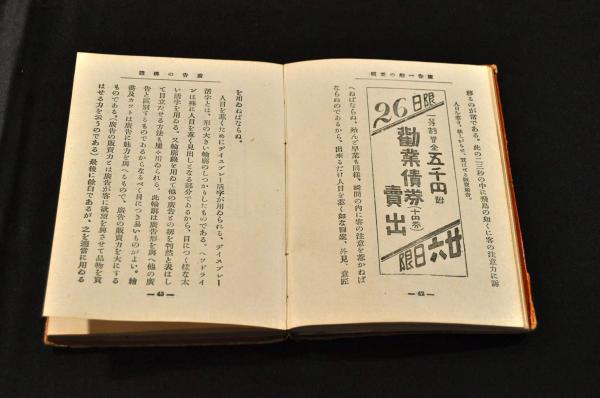 廣告一般の要領
移るのが常である。此の二三秒の中に飛鳥の如くに客の注意力に訴
人目を惹き、欲しがらせ、買はせる販賣廣告。
26日限
一等割増金五千円
勸業債券賣出
(十円券)
廿六日限
へねばならぬ。殆んど早業も同様、瞬間の内に客の注意を惹かねば
ならぬのであるから、出來るだけ人目を惹く如な圖案、外見、意匠
— 42 —
廣告の構造
を用ゐねばならぬ。
人目を惹くためにディスプレー活字が用ゐられる。ディスプレー
活字とは、形の大きい輪廓のしつかりしたものである。ヘッドライ
ンは殊に人目を惹く見出しとなる部分であるから、目につく樣な太
い活字を用ゐる。又輪廓線を用ゐて他の廣告との堺を判然と表はし
て目立たせる方法も屢々用ゐられる。此輪廓は廣告形を與へ他の廣
告と區別するものであるからなるべく目につき易いものがよい。繪
畫及カットは廣告に魅力を與へるもので、廣告の販賣力を大にする
ものである、(廣告の販賣力とは廣告が客に欲望を興させて品物を買
はせる力を云うのである)最後に餘白であるが、之を適當に用ゐる
— 43 —